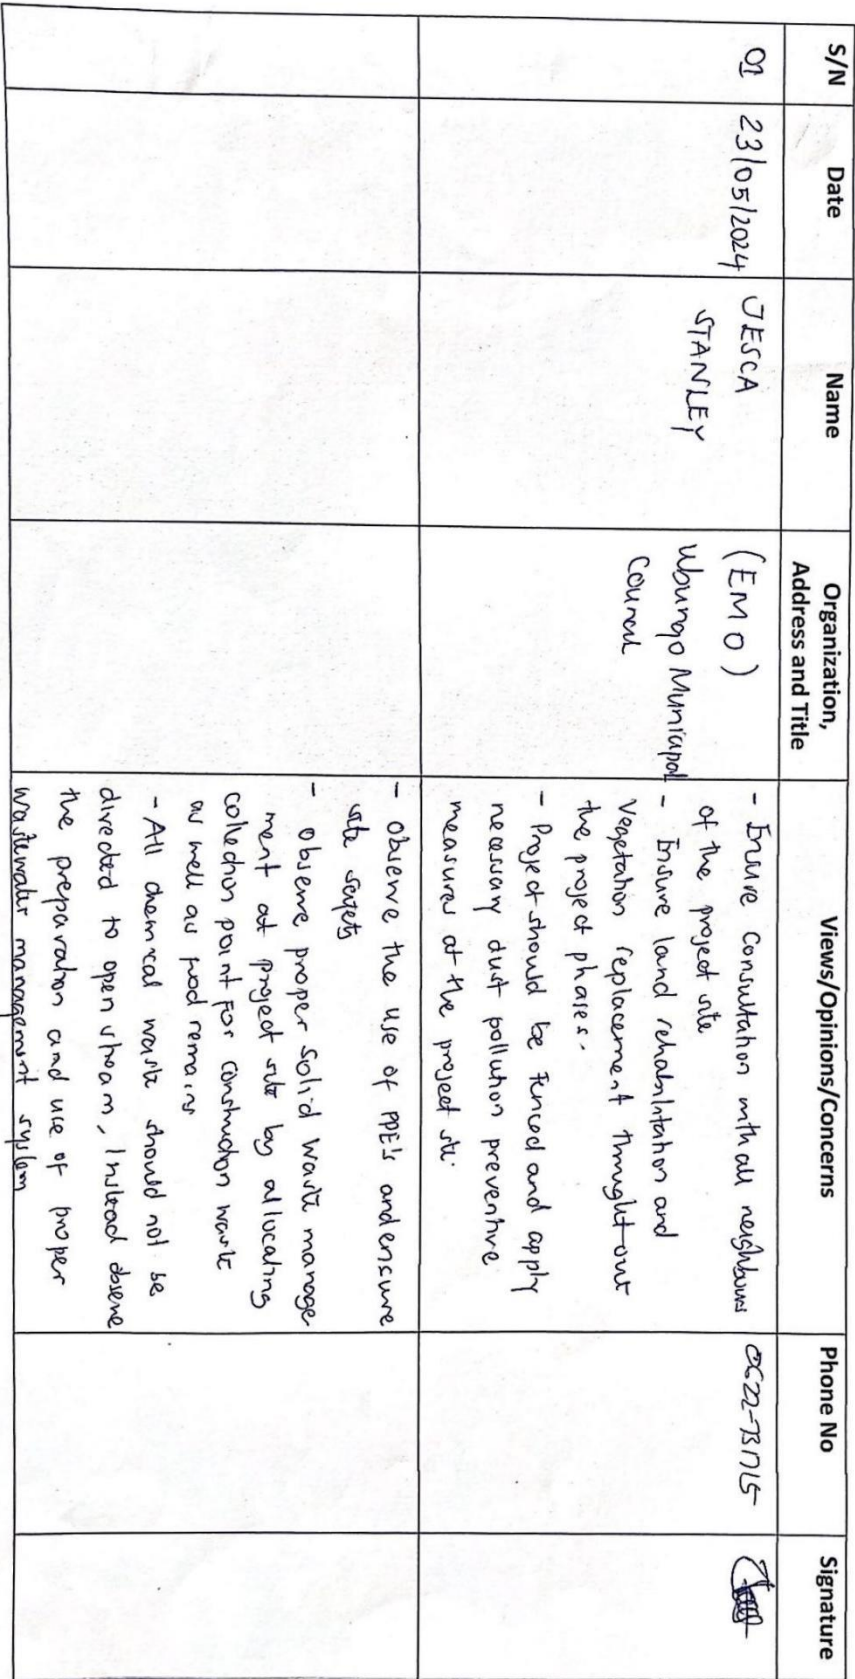 S/N Date Name Organization, Address and Title Views/Opinions/Concerns Phone No Signature
01 23/05/2024 JESCA
STANLEY
(EMO)
Ubungo Municipal
Council
- Ensure Consultation with all neighbours
of the project site
- Ensure land rehabilitation and
Vegetation replacement throught out
the project phases.
- Project should be Fenced and apply
necessary dust pollution preventive
measures at the project site.
- Observe the use of PPE's and ensure
site safety
- Observe proper solid waste manage
ment at project site by allocating
collection point for construction waste
as well as food remains
- All chemical waste should not be
directed to open stream, Instead observe
the preparation and use of proper
wastewater management system